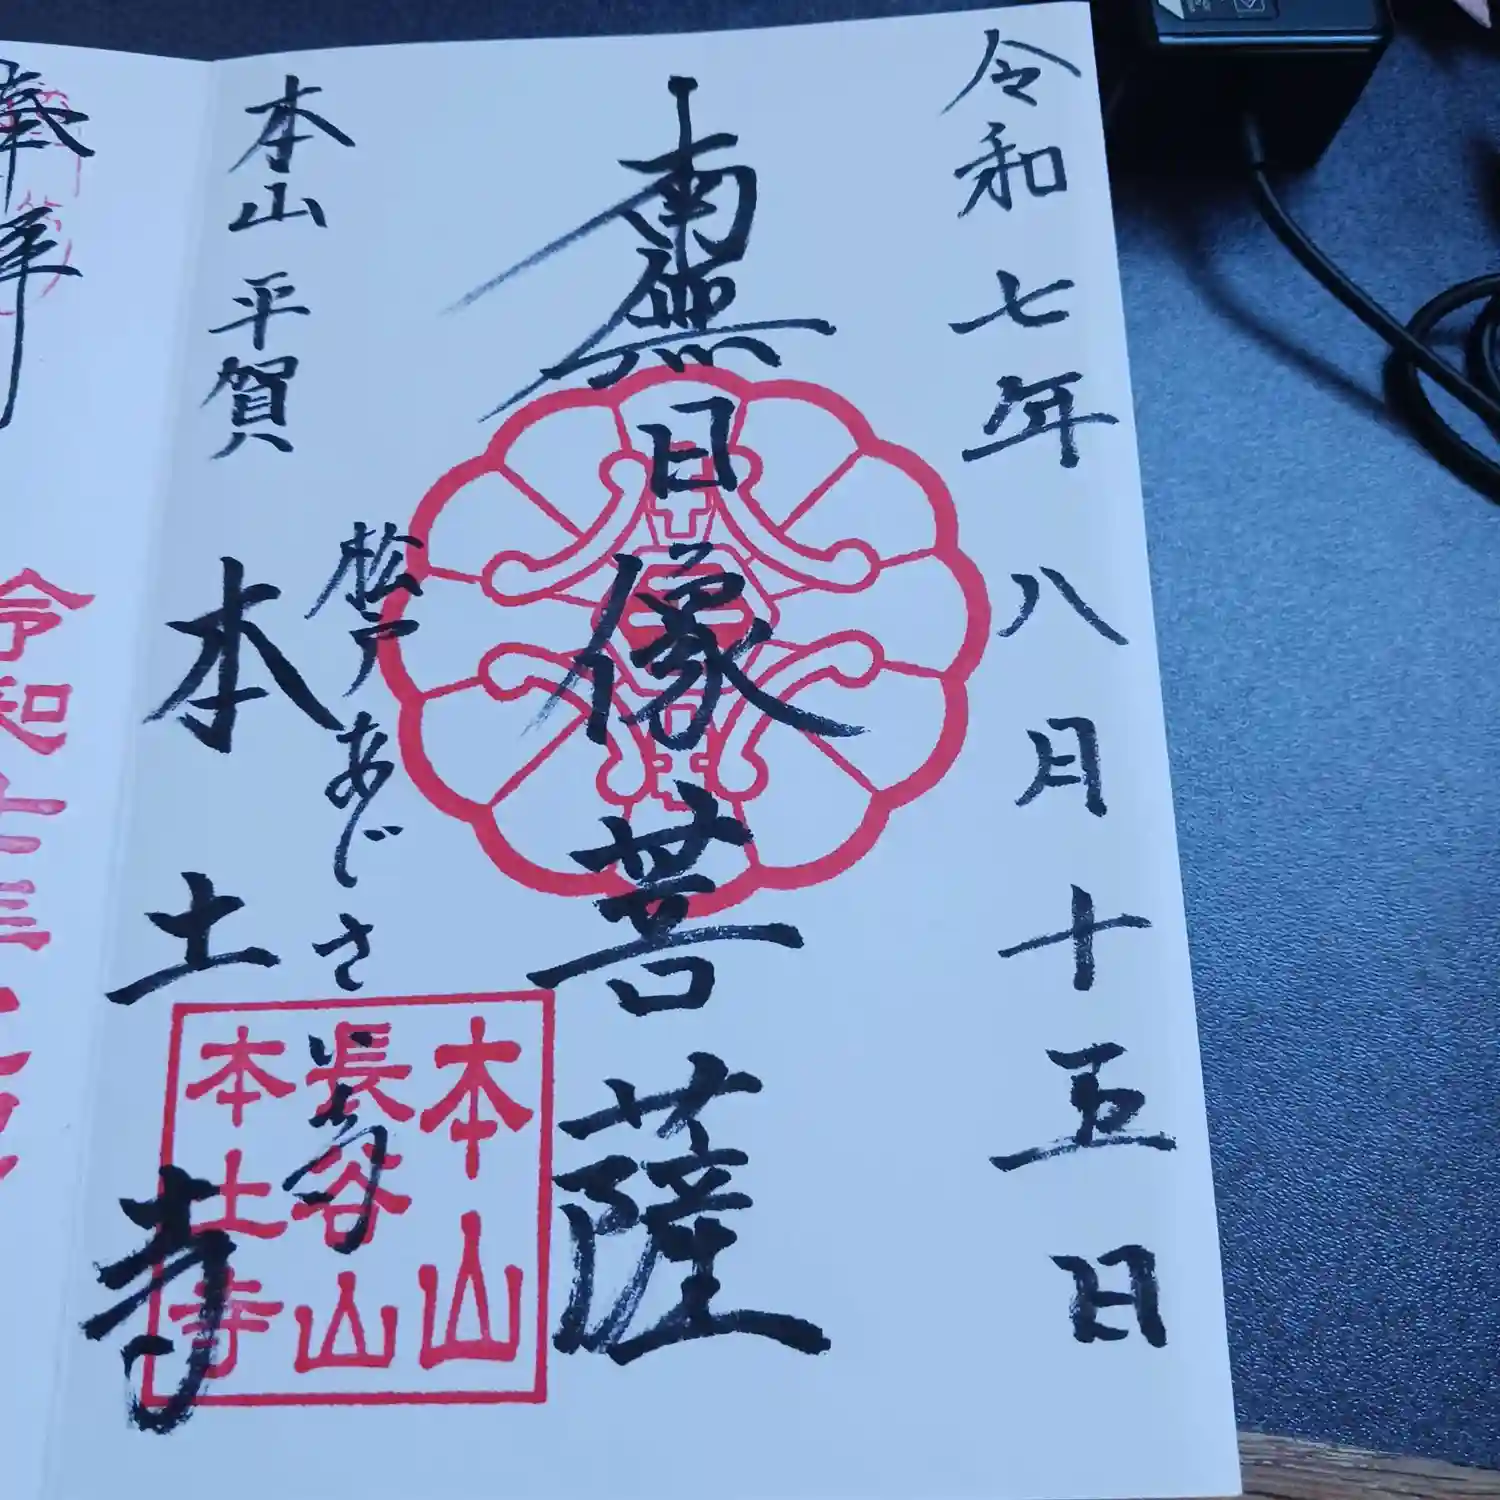 令和七年八月十五日
南無日像菩薩
松戸あじさい寺
本山平賀
本土寺
本山
長谷山
本土寺
奉拝
令和七年